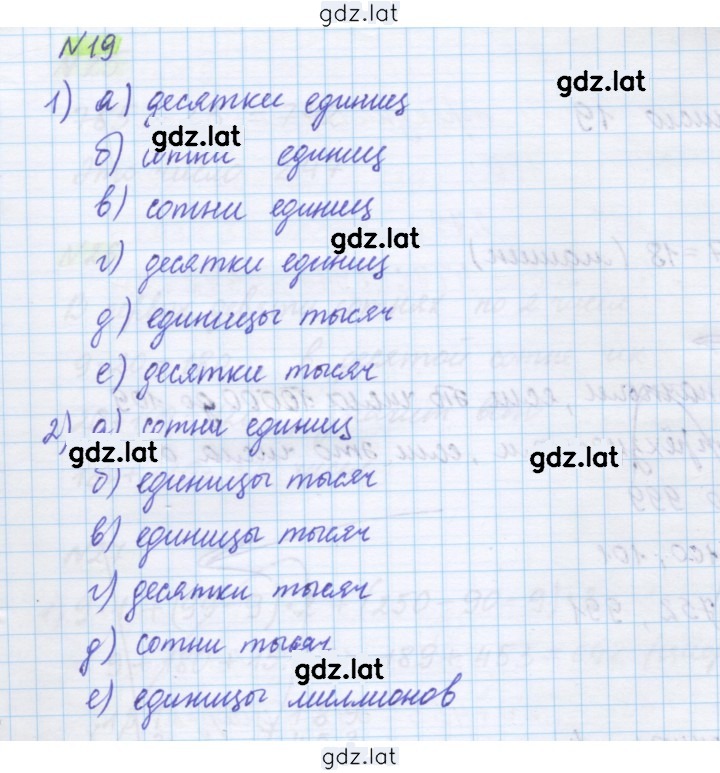 gdz.lat
№19
1) а) десятки единиц
gdz.lat
gdz.lat
б) сотни единиц
в) сотни единиц
gdz.lat
г) десятки единиц
д) единицы тысяч
е) десятки тысяч
2) а) сотни единиц
gdz.lat
gdz.lat
б) единицы тысяч
в) единицы тысяч
г) десятки тысяч
д) сотни тысяч
gdz.lat
е) единицы миллионов
gdz.lat